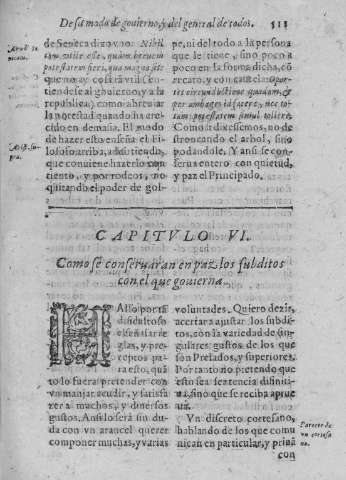 De su modo de gouierno, y del general de todos. 513
de Seneca dizo vno: Nihil
tam vtile est, quàm breuem
potestatem
tiendese al gouierno, y a la
republica) como abreuiar
la potestad quando ha cre
cido en demasia. El modo
de hazer esto enseña el Fi-
losofo arriba, aduirtiendo,
que conuiene hazerlo con
tiento, y por rodeos, no
quitando el poder de gol-
pe, ni del todo a la persona
que le tiene, sino poco a
poco en la forma dicha, cõ
recato, y con cautela: Opor-
tet circunductione quadam, &
per ambages id facere, nec to-
tam potestatem simul tollere.
Como si dixessemos, no de
stroncando el arbol, sino
podandole. Y ansi se con-
serua entero con quietud,
y paz el Principado.
CAPITVLO VI.
Como se conseruaran en paz los subditos
con el que gouierna.
HAllo por tã
dificultoso
el señalar re
glas, y pre-
ceptos pa-
ra esto, quã
to lo fuera pretender con
vn manjar acudir, y satisfa
zer a muchos, y diuersos
gustos. Ansi lo serà sin du-
da con vn arancel querer
componer muchas, y varias
voluntades. Quiero dezir,
acertar a ajustar los subdi-
tos, con la variedad de sin-
gulares gustos de los que
son Prelados, y superiores.
Por tanto no pretendo que
esto sea sentencia difiniti-
ua, sino que se reciba a prue
ua.
Vn discreto cortesano,
hablando de los que comu
nican en particular, y prinã
con
Parecer de
vn cortesa
no.